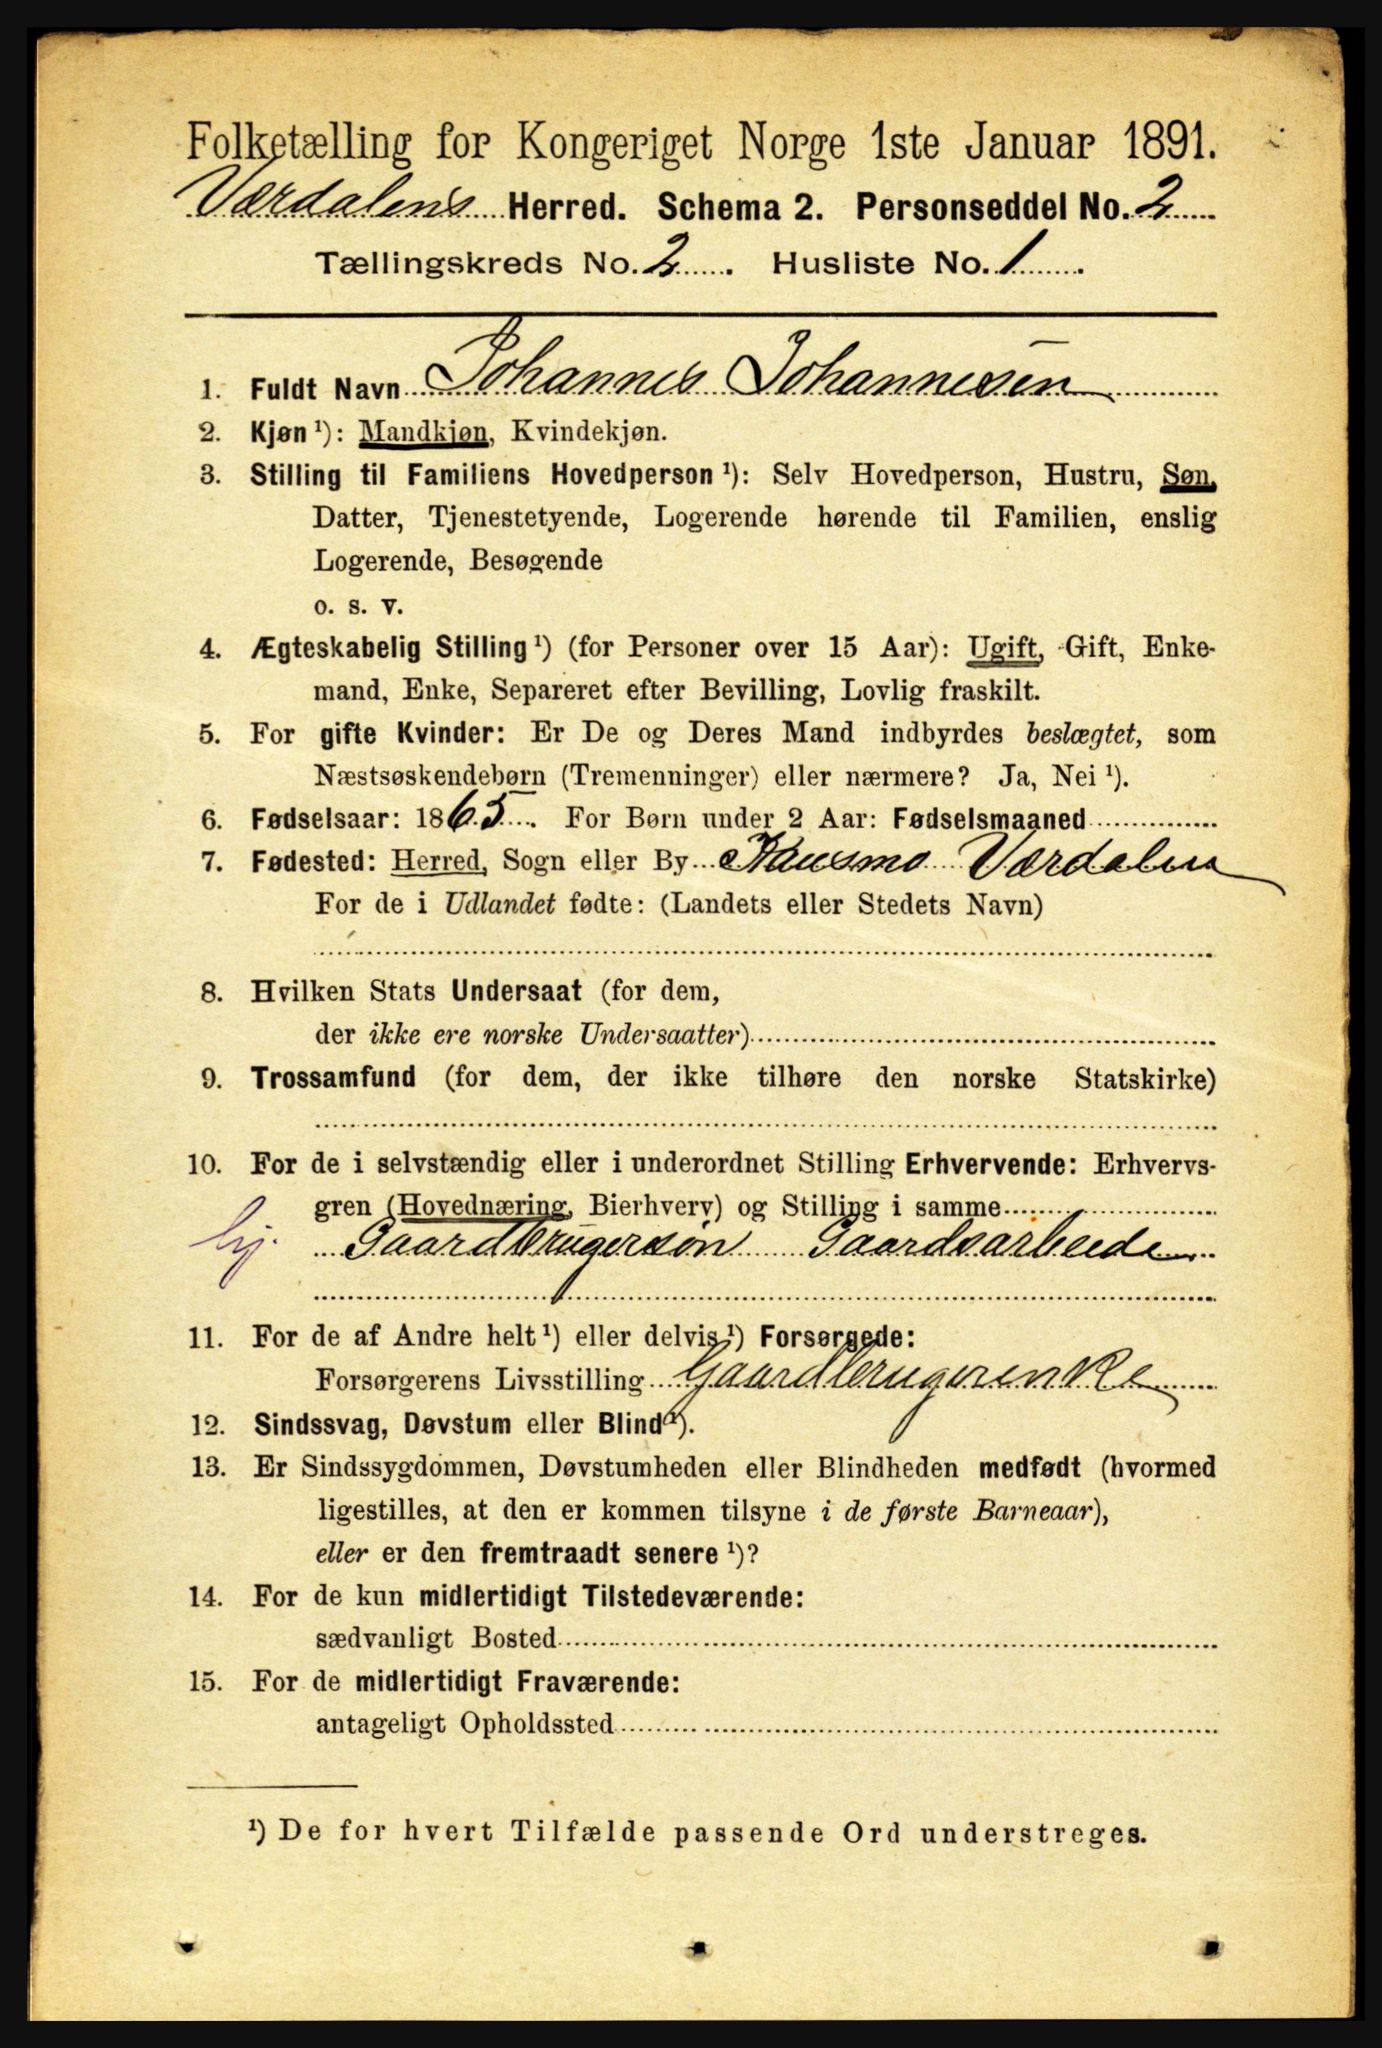 Folketælling for Kongeriget Norge 1ste Januar 1891.
Værdalens Herred. Schema 2. Personseddel No. 2
Tællingskreds No. 2. Husliste No. 1
1. Fuldt Navn Johannes Johannesen
2. Kjøn ¹): Mandkjøn, Kvindekjøn.
3. Stilling til Familiens Hovedperson ¹): Selv Hovedperson, Hustru, Søn,
Datter, Tjenestetyende, Logerende hørende til Familien, enslig
Logerende, Besøgende
o. s. v.
4. Ægteskabelig Stilling ¹) (for Personer over 15 Aar): Ugift, Gift, Enke-
mand, Enke, Separeret efter Bevilling, Lovlig fraskilt.
5. For gifte Kvinder: Er De og Deres Mand indbyrdes beslægtet, som
Næstsøskendebørn (Tremenninger) eller nærmere? Ja, Nei ¹).
6. Fødselsaar: 1865. For Børn under 2 Aar: Fødselsmaaned
7. Fødested: Herred, Sogn eller By Hausmo Værdalen
For de i Udlandet fødte: (Landets eller Stedets Navn)
8. Hvilken Stats Undersaat (for dem,
der ikke ere norske Undersaatter)
9. Trossamfund (for dem, der ikke tilhøre den norske Statskirke)
10. For de i selvstændig eller i underordnet Stilling Erhvervende: Erhvervs-
gren (Hovednæring, Bierhverv) og Stilling i samme
hj. Gaardbrugersøn Gaardsarbeide
11. For de af Andre helt ¹) eller delvis ¹) Forsørgede:
Forsørgerens Livsstilling Gaardbrugerenke
12. Sindssvag, Døvstum eller Blind ¹).
13. Er Sindssygdommen, Døvstumheden eller Blindheden medfødt (hvormed
ligestilles, at den er kommen tilsyne i de første Barneaar),
eller er den fremtraadt senere ¹)?
14. For de kun midlertidigt Tilstedeværende:
sædvanligt Bosted
15. For de midlertidigt Fraværende:
antageligt Opholdssted
¹) De for hvert Tilfælde passende Ord understreges.